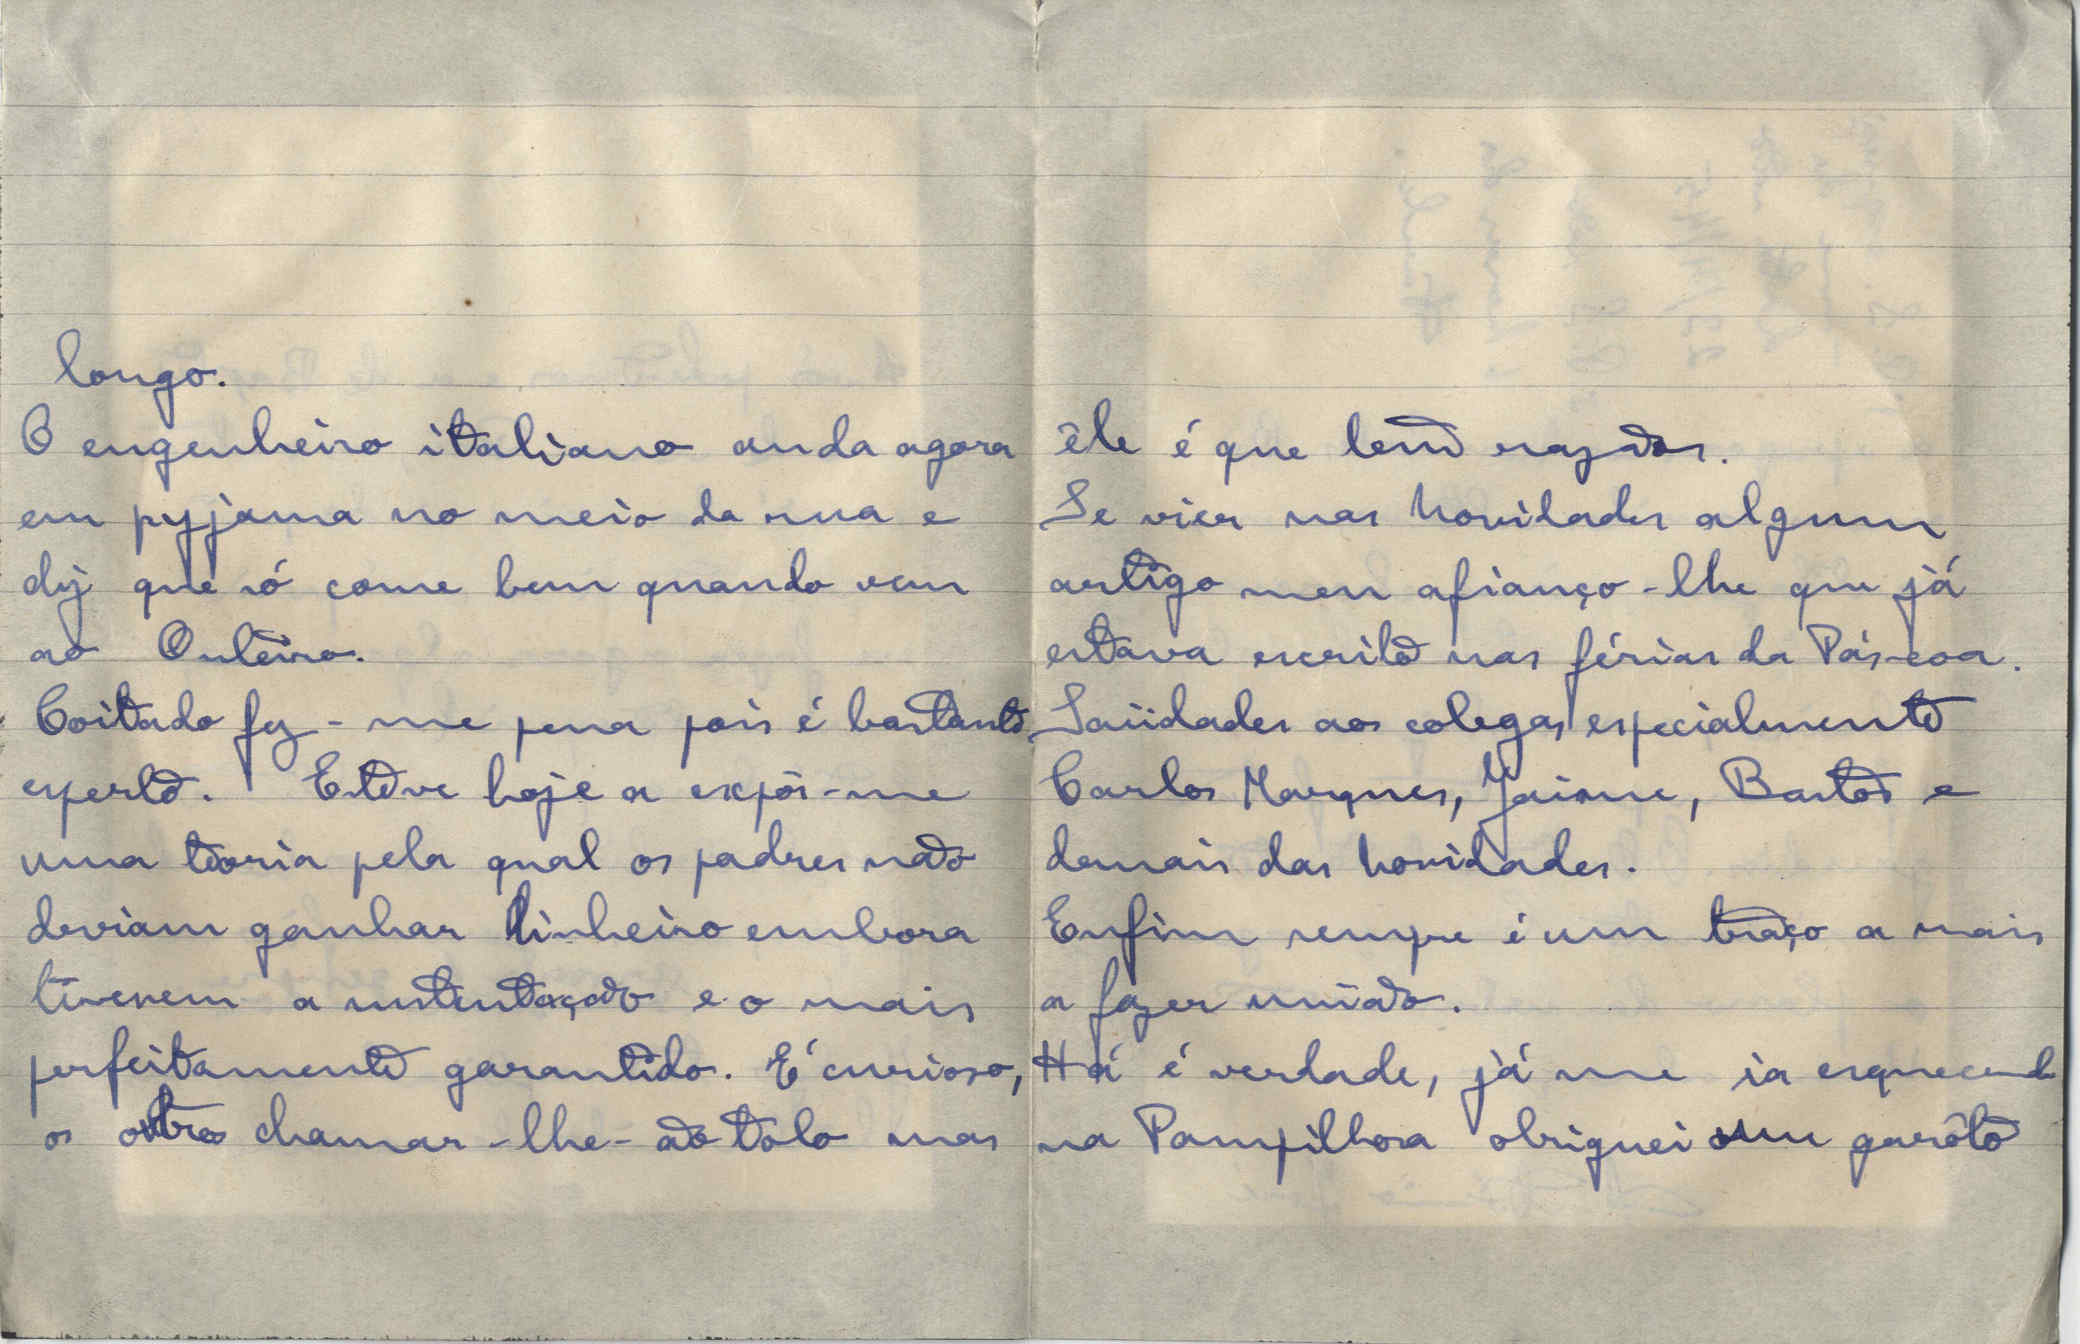 longo.
O engenheiro italiano anda agora
em pyjama no meio da rua e
diz que só come bem quando vem
ao Outeiro.
Coitado fez-me pena pois é bastante
esperto. Esteve hoje a expôr-me
uma teoria pela qual os padres não
deviam ganhar dinheiro embora
tivessem a sustentação e o mais
perfeitamente garantido. É curioso,
os outros chamar-lhe-ão tolo mas
êle é que tem razão.
Se vier nas Novidades algum
artigo meu afianço-lhe que já
estava escrito nas férias da Páscoa.
Saüdades aos colegas especialmente
Carlos Marques, Jaime, Bastos e
demais das Novidades.
Enfim sempre é um traço a mais
a fazer união.
Há é verdade, já me ia esquecendo
na Pampilhosa obriguei um garôto